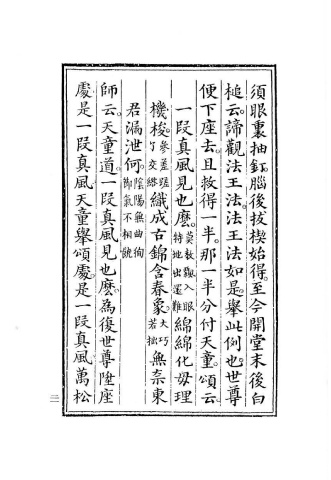 須眼裏抽釘。腦後拔楔始得。至今開堂末後白
槌云。諦觀法王法。法王法如是。舉此例也。世尊
便下座去。且救得一半。那一半分付天童。頌云。
一段真風見也麼。莫教瞇入眼特地出還難綿綿化母理
機梭。參差織成古錦含春象。大巧若拙無奈東
君漏泄何。陰陽無曲徇節氣不相饒
師云。天童道。一段真風見也麼。為復世尊陞座
處是一段真風。天童舉頌處。是一段真風。萬松
二